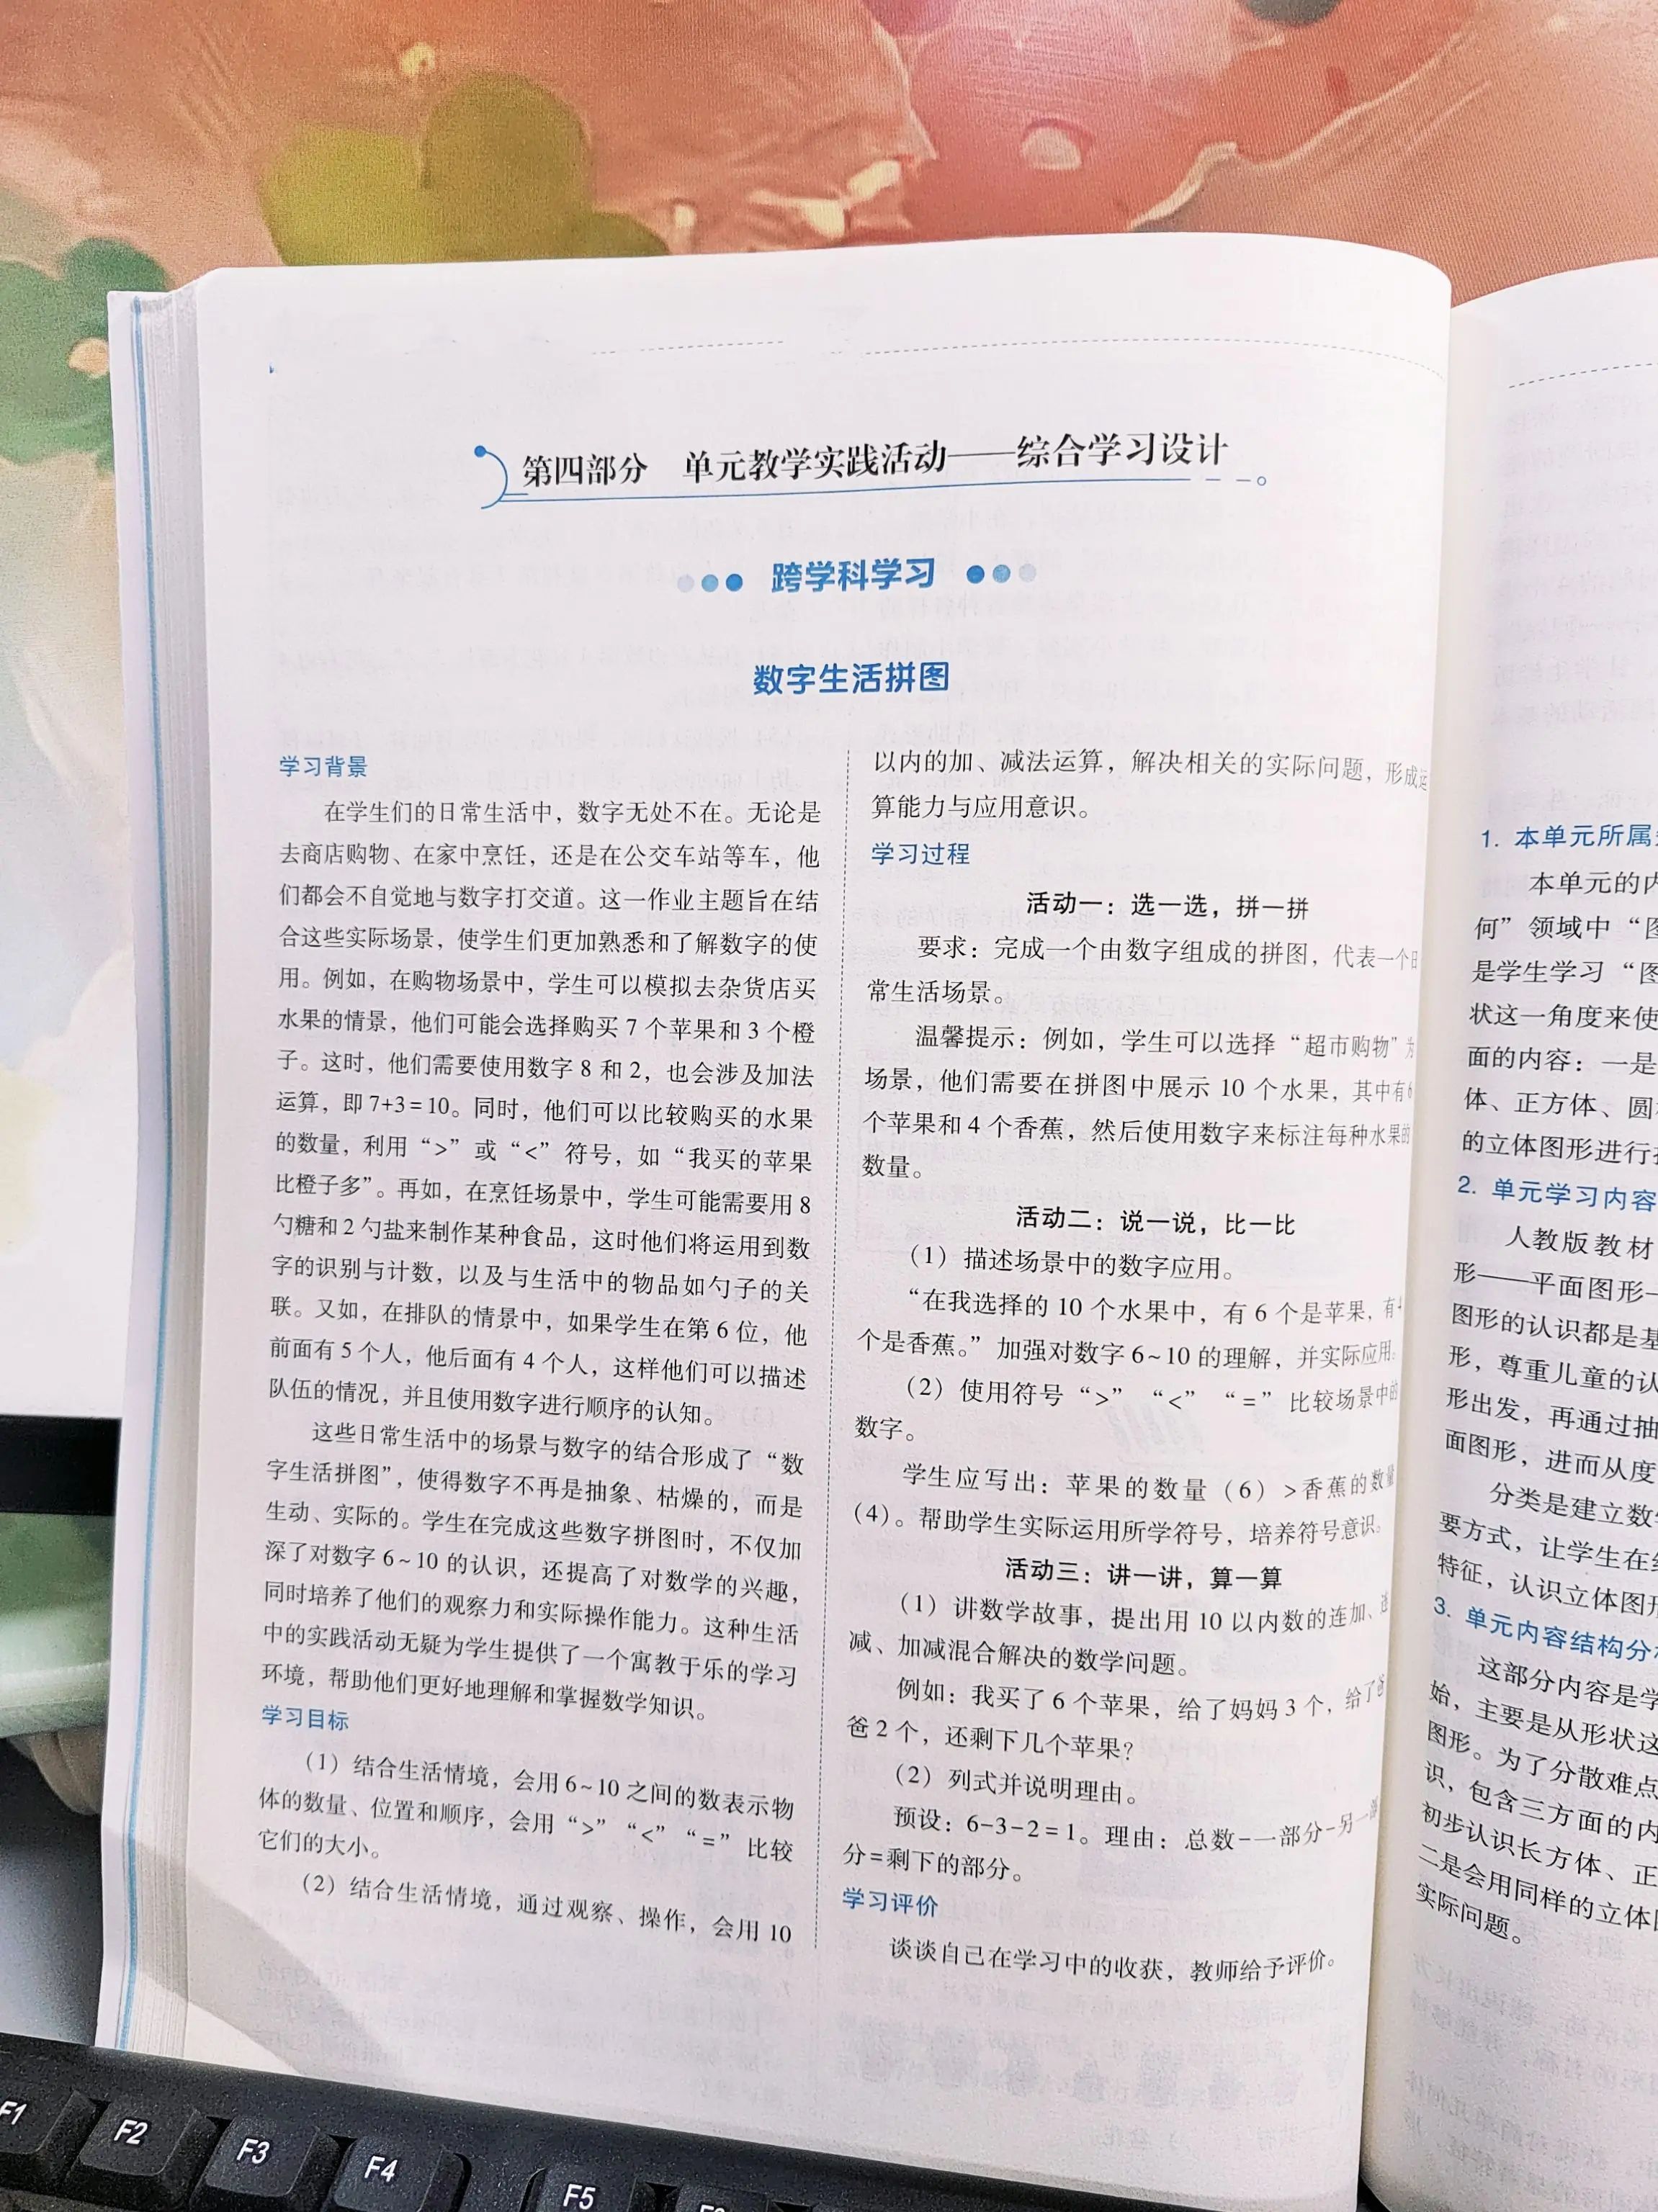 第四部分　单元教学实践活动——综合学习设计
跨学科学习
数字生活拼图
学习背景
在学生们的日常生活中，数字无处不在。无论是
去商店购物、在家中烹饪，还是在公交车站等车，他
们都会不自觉地与数字打交道。这一作业主题旨在结
合这些实际场景，使学生们更加熟悉和了解数字的使
用。例如，在购物场景中，学生可以模拟去杂货店买
水果的情景，他们可能会选择购买 7 个苹果和 3 个橙
子。这时，他们需要使用数字 8 和 2，也会涉及加法
运算，即 7+3=10。同时，他们可以比较购买的水果
的数量，利用“>”或“<”符号，如“我买的苹果
比橙子多”。再如，在烹饪场景中，学生可能需要用 8
勺糖和 2 勺盐来制作某种食品，这时他们将运用到数
字的识别与计数，以及与生活中的物品如勺子的关
联。又如，在排队的情景中，如果学生在第 6 位，他
前面有 5 个人，他后面有 4 个人，这样他们可以描述
队伍的情况，并且使用数字进行顺序的认知。
这些日常生活中的场景与数字的结合形成了“数
字生活拼图”，使得数字不再是抽象、枯燥的，而是
生动、实际的。学生在完成这些数字拼图时，不仅加
深了对数字 6~10 的认识，还提高了对数学的兴趣，
同时培养了他们的观察力和实际操作能力。这种生活
中的实践活动无疑为学生提供了一个寓教于乐的学习
环境，帮助他们更好地理解和掌握数学知识。
学习目标
（1）结合生活情境，会用 6~10 之间的数表示物
体的数量、位置和顺序，会用“>”“<”“=”比较
它们的大小。
（2）结合生活情境，通过观察、操作，会用 10
以内的加、减法运算，解决相关的实际问题，形成运
算能力与应用意识。
学习过程
活动一：选一选，拼一拼
要求：完成一个由数字组成的拼图，代表一个日
常生活场景。
温馨提示：例如，学生可以选择“超市购物”为
场景，他们需要在拼图中展示 10 个水果，其中有 6
个苹果和 4 个香蕉，然后使用数字来标注每种水果的
数量。
活动二：说一说，比一比
（1）描述场景中的数字应用。
“在我选择的 10 个水果中，有 6 个是苹果，有 4
个是香蕉。”加强对数字 6~10 的理解，并实际应用。
（2）使用符号“>”“<”“=”比较场景中的
数字。
学生应写出：苹果的数量（6）>香蕉的数量
（4）。帮助学生实际运用所学符号，培养符号意识。
活动三：讲一讲，算一算
（1）讲数学故事，提出用 10 以内数的连加、连
减、加减混合解决的数学问题。
例如：我买了 6 个苹果，给了妈妈 3 个，给了爸
爸 2 个，还剩下几个苹果？
（2）列式并说明理由。
预设：6-3-2=1。理由：总数-一部分-另一部
分=剩下的部分。
学习评价
谈谈自己在学习中的收获，教师给予评价。
1. 本单元所属
本单元的内
何”领域中“图
是学生学习“图
状这一角度来使
面的内容：一是
体、正方体、圆
的立体图形进行
2. 单元学习内容
人教版教材
形——平面图形
图形的认识都是基
形，尊重儿童的认
形出发，再通过抽
面图形，进而从度
分类是建立数
要方式，让学生在
特征，认识立体图形
3. 单元内容结构分
这部分内容是学
始，主要是从形状这
图形。为了分散难点
识，包含三方面的内
初步认识长方体、正
二是会用同样的立体
实际问题。
F1
F2
F3
F4
F5